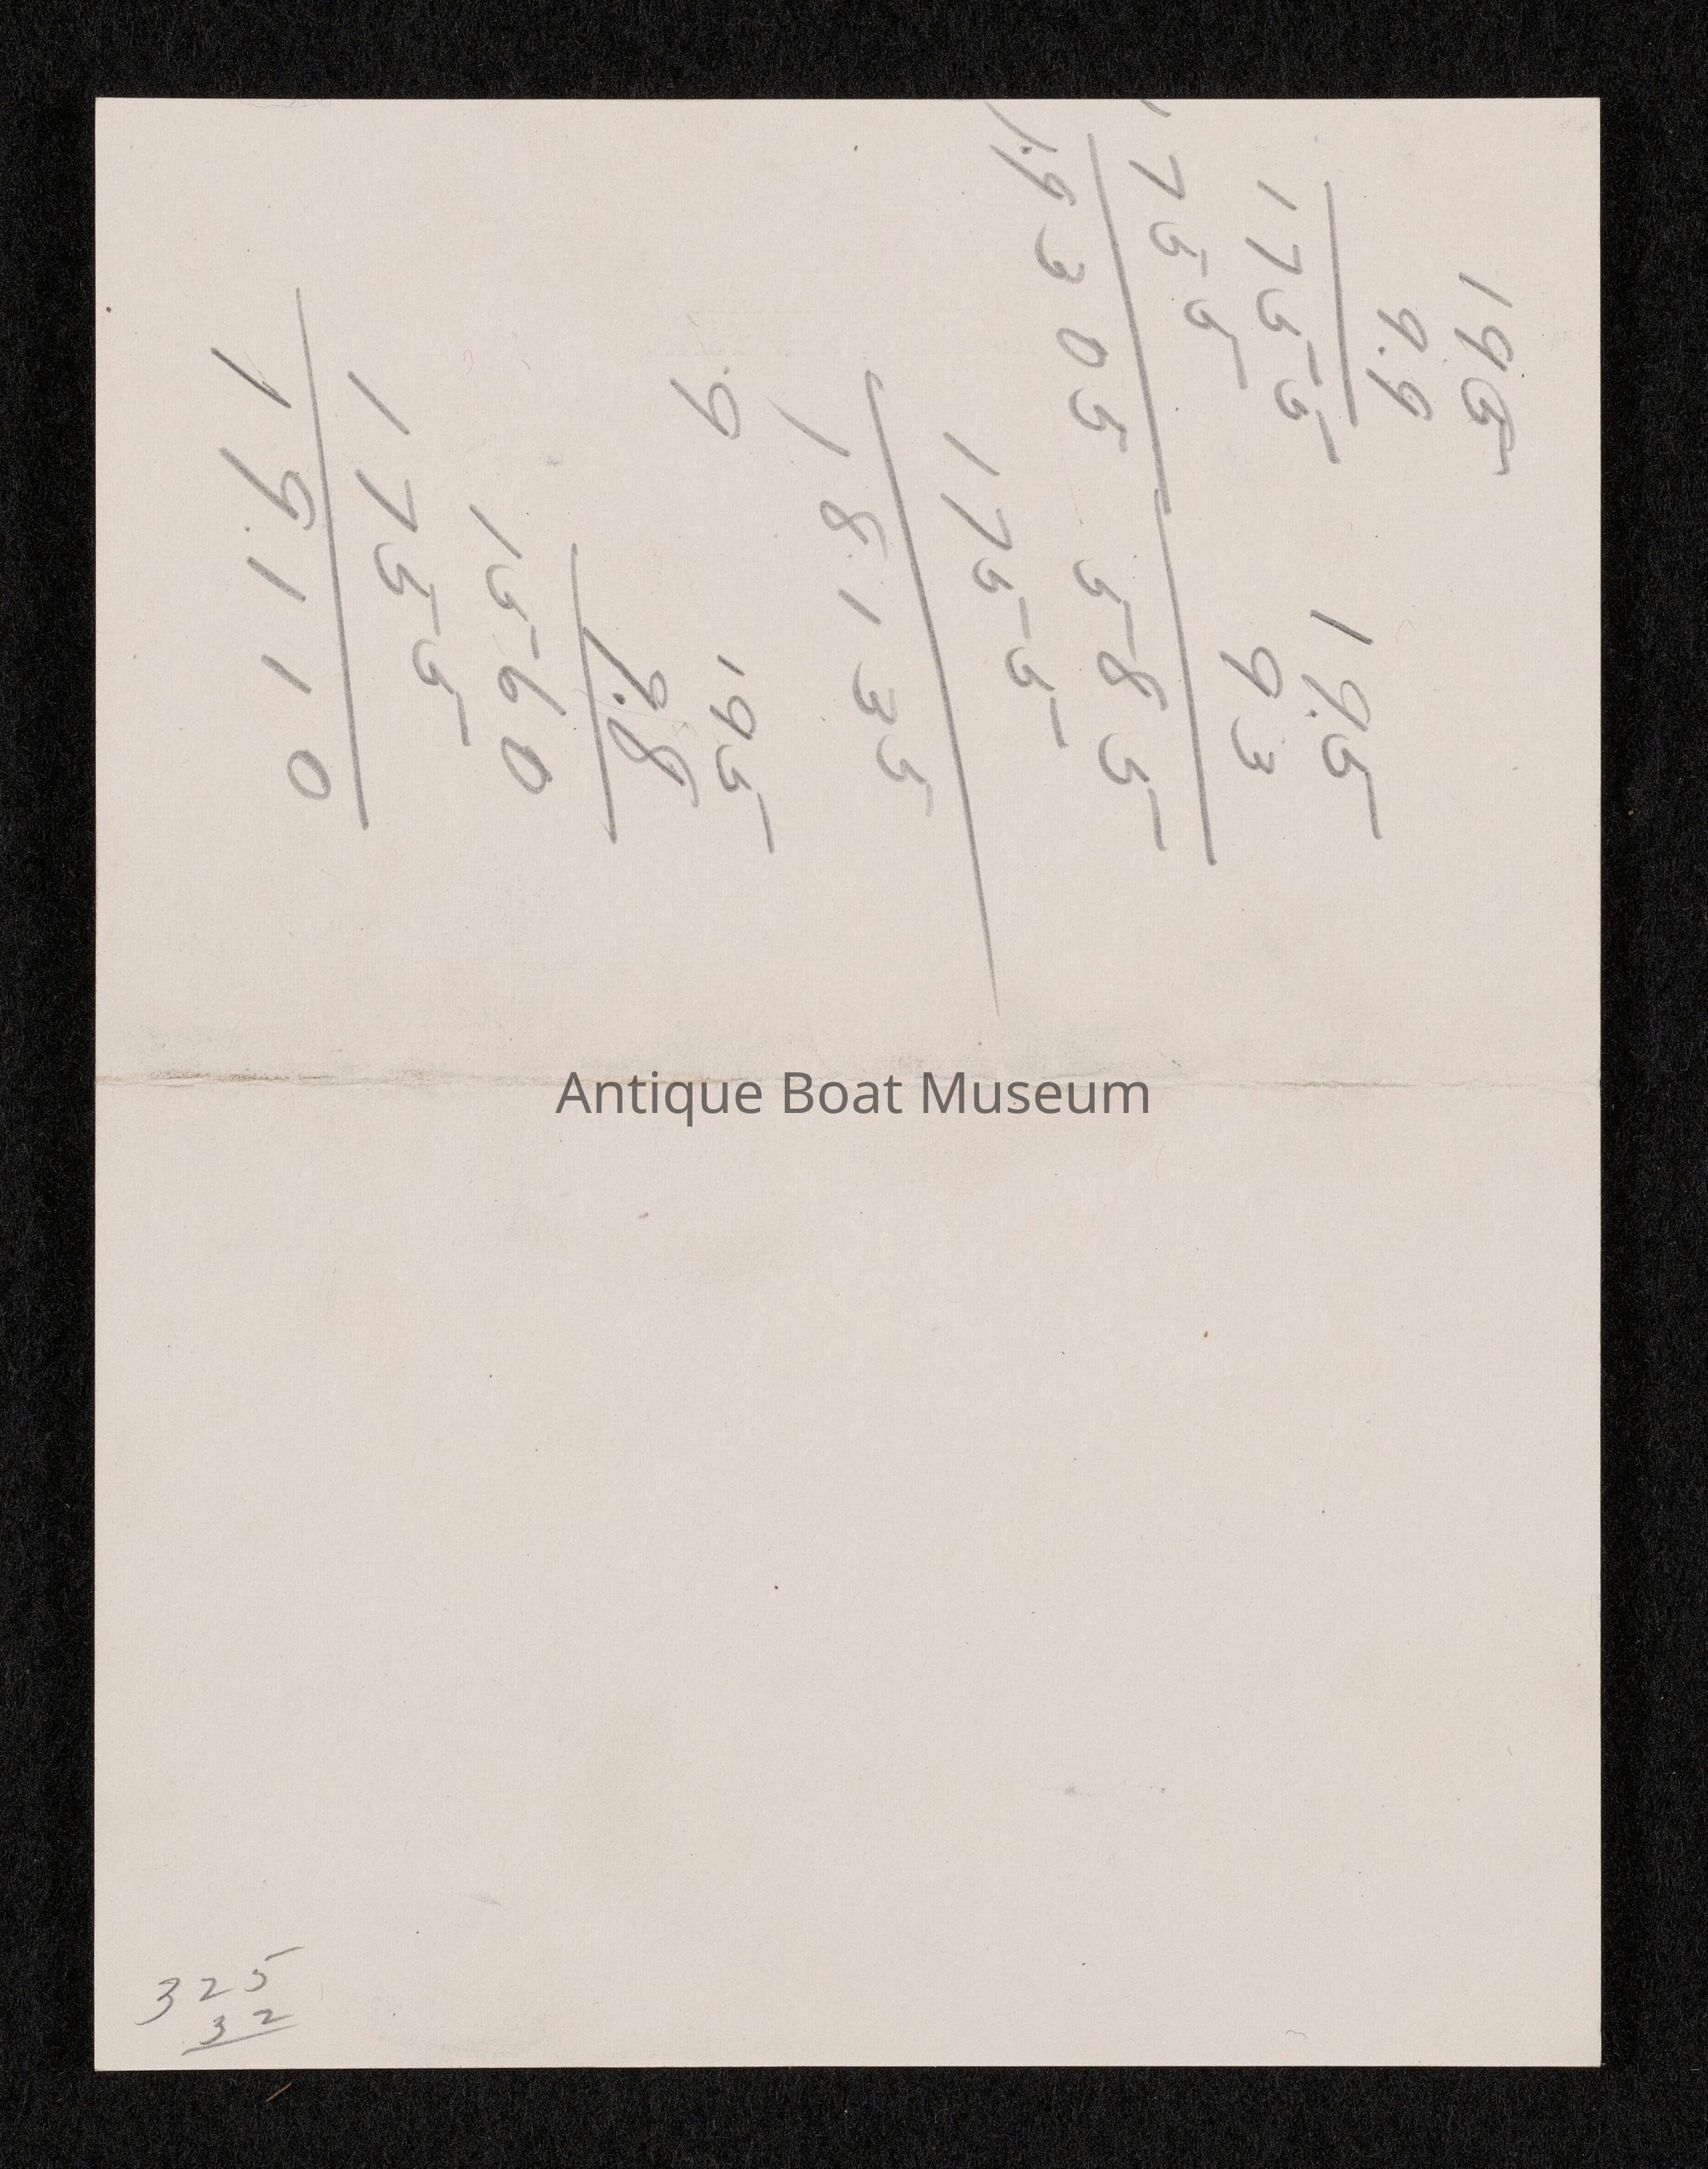 195
9.9
1755
1755
1.9305
19.5
93
585
1755
18.135
9
195
9.8
1560
1755
19.110
Antique Boat Museum
325
32